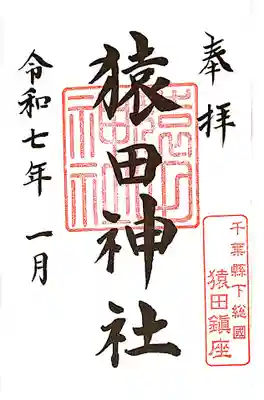 奉拝
猿田神社
猿田神社
令和七年 一月
千葉縣下総國
猿田鎮座